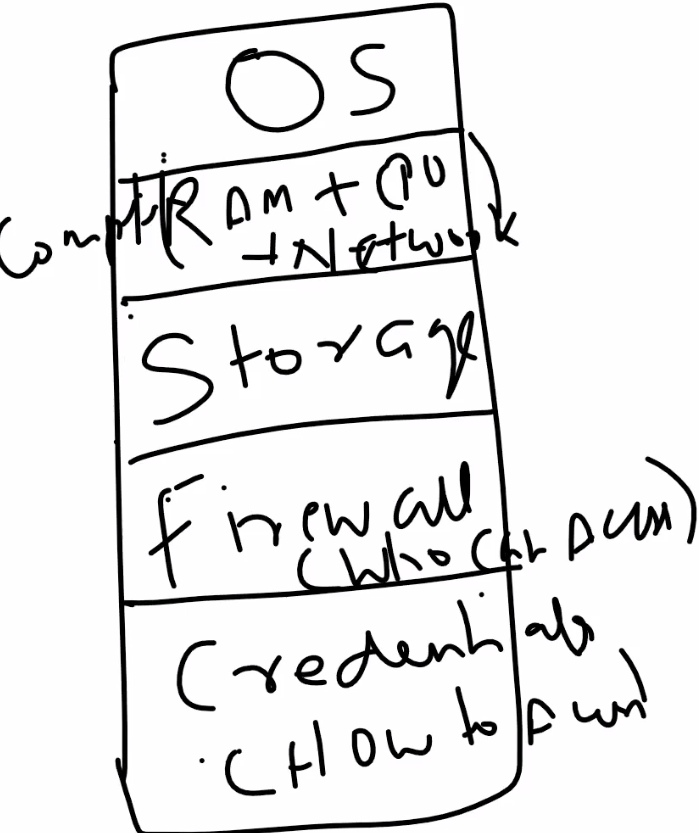 OS
Comput RAM + CPU
+ Network
Storage
Firewall
(Who Can Access)
Credentials
(How to Access)